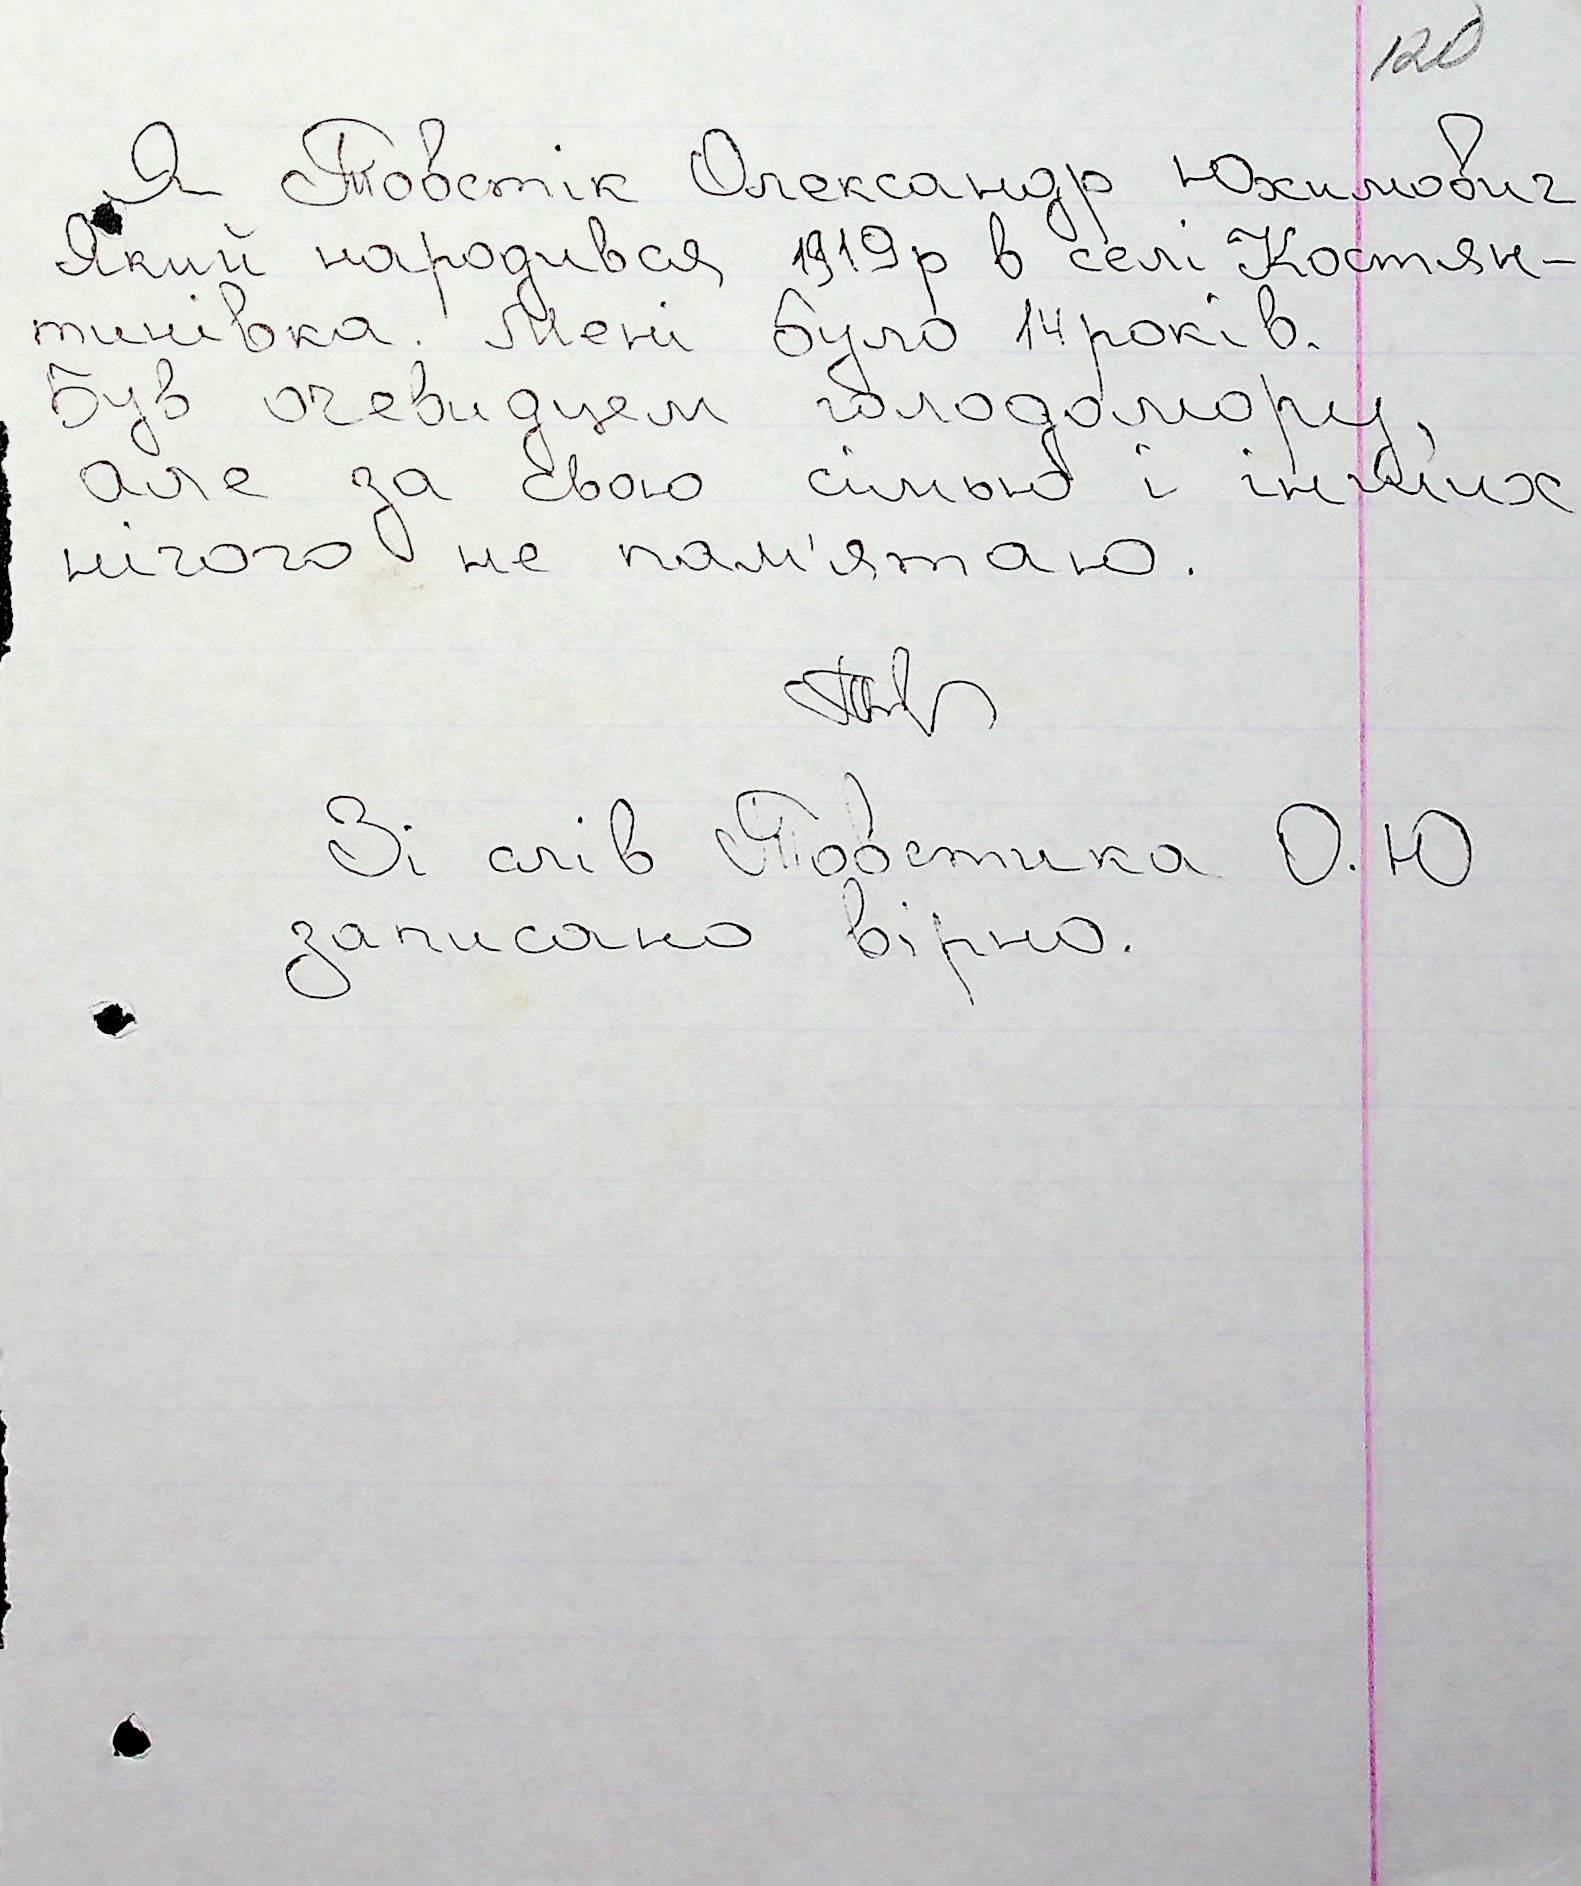 120
Я Товстік Олександр Юхимович
Який народився 1919р в селі Костян-
тинівка. Мені було 14 років.
Був очевидцем голодомору,
але за свою сімью і інших
нічого не пам'ятаю.
Зі слів Товстика О.Ю
записано вірно.